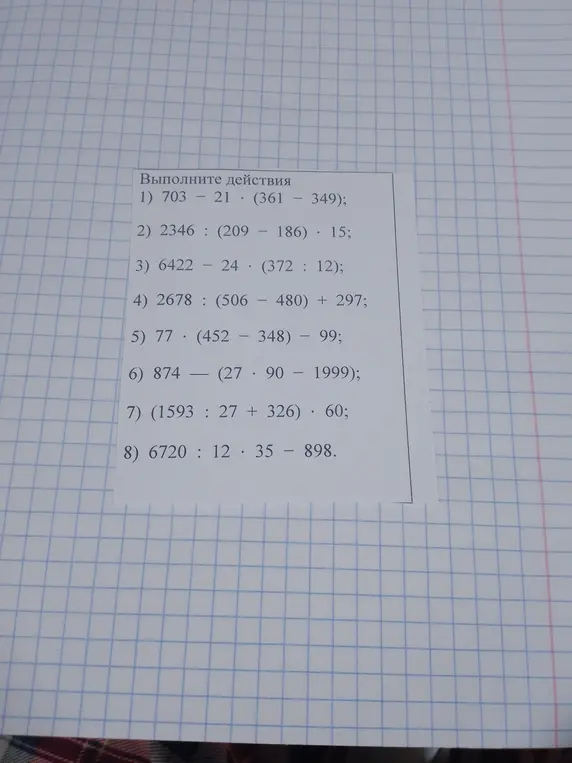 Выполните действия
1) 703 − 21 · (361 − 349);
2) 2346 : (209 − 186) · 15;
3) 6422 − 24 · (372 : 12);
4) 2678 : (506 − 480) + 297;
5) 77 · (452 − 348) − 99;
6) 874 — (27 · 90 − 1999);
7) (1593 : 27 + 326) · 60;
8) 6720 : 12 · 35 − 898.